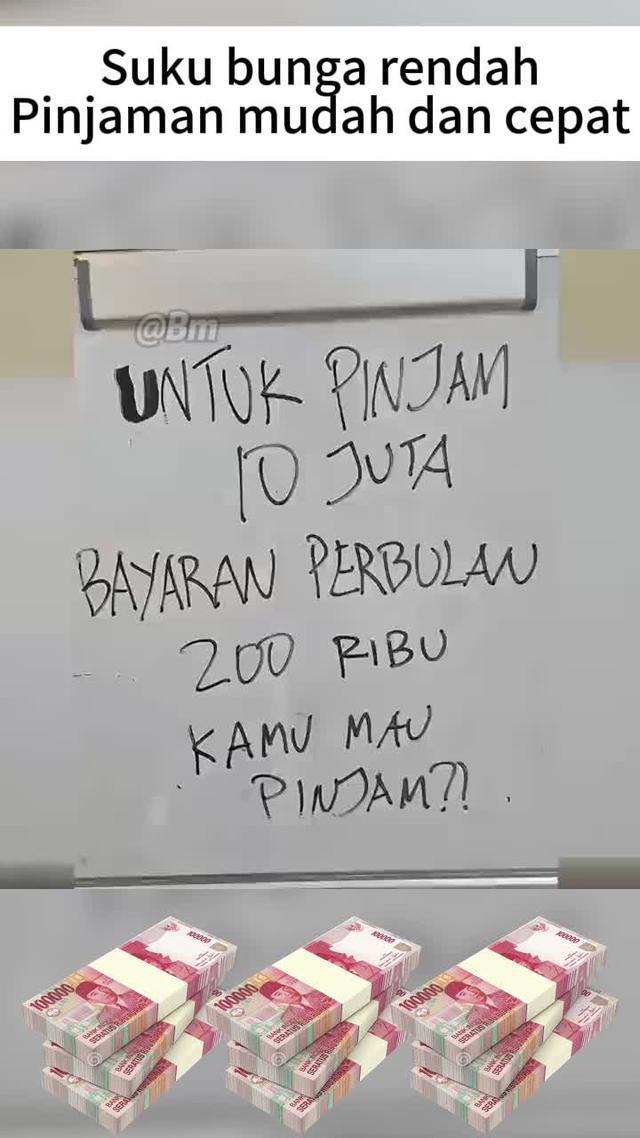 Suku bunga rendah
Pinjaman mudah dan cepat
@Bm
UNTUK PINJAM
10 JUTA
BAYARAN PERBULAN
200 RIBU
KAMU MAU
PINJAM?!
100000
100000
100000
100000
100000
100000